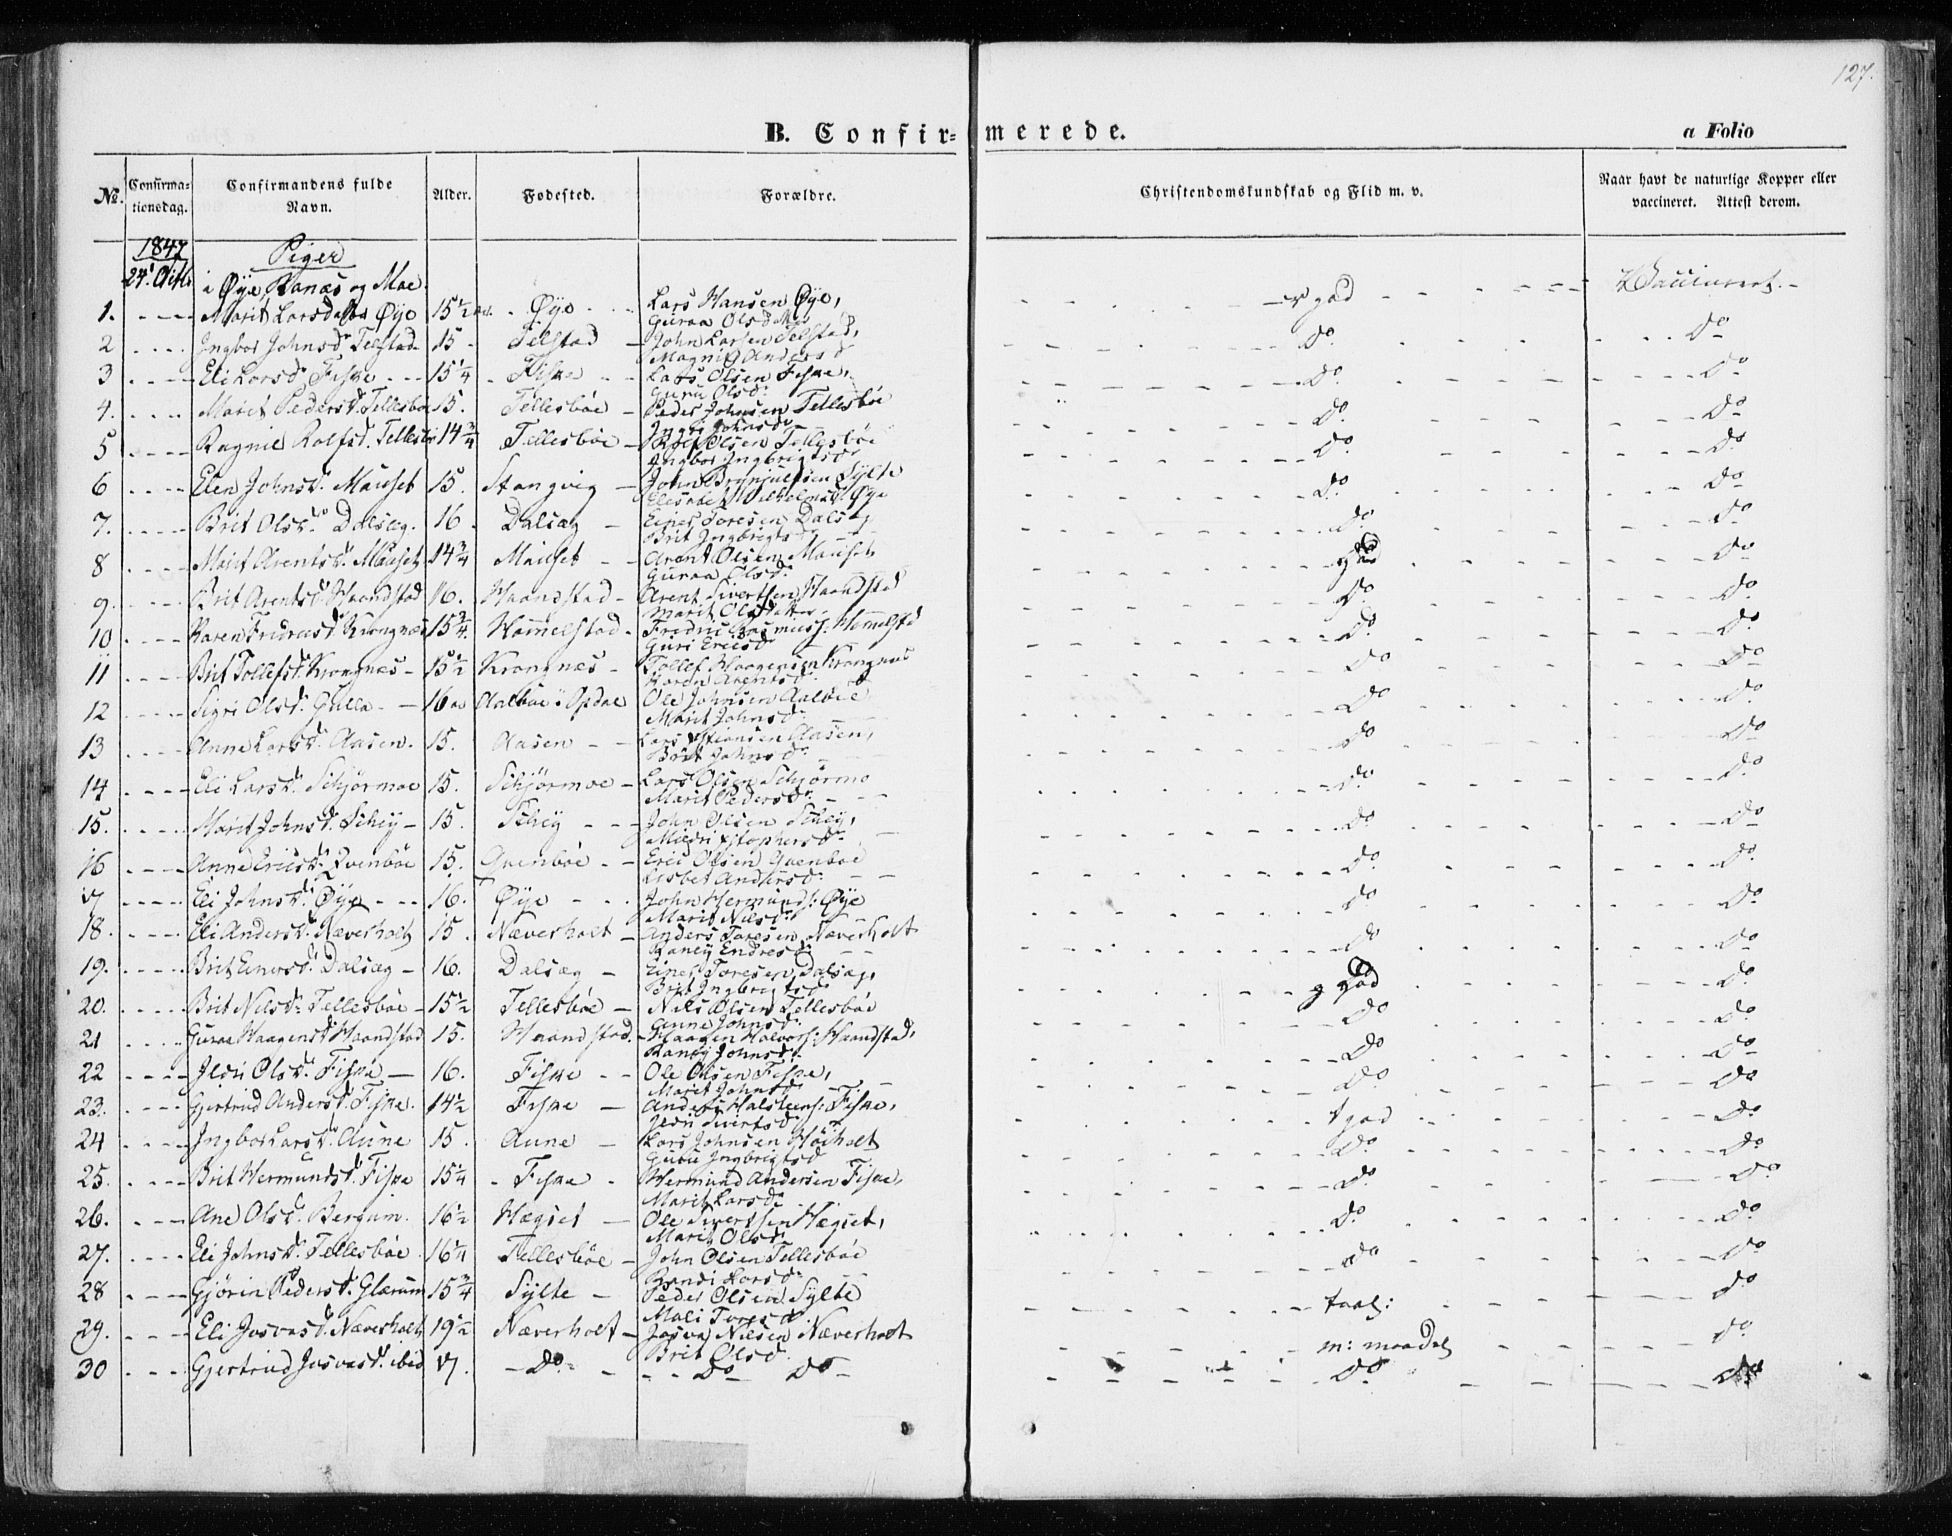 127.
B. Confir=merede.
a Folio
No. Confirma=tionsdag. Confirmandens fulde Navn. Alder. Fødested. Forældre. Christendomskundskab og Flid m. v. Naar havt de naturlige Kopper eller vaccineret. Attest derom.
1847 Piger
24' Octb. i Øye, Ranæs og Moe
1. Marit Larsdatter Øye 15 1/2 Øye Lars Hansen Øye, Guraa Olsdatter god Vaccineret.
2 Ingbor Johnsd. Telstad 15 Telstad John Larsen Telstad, Magnil Andersd Do Do
3 Eli Larsd. Fiske 15 1/4 Fiske Lars Olsen Fiske, Guru Olsd: Do Do
4. Marit Pedersd. Tellesbøe 15. Tellesbøe Peder Johnsen Tellesbøe Ingri Johnsd. Do Do
5 Ragnil Rolfsd. Tellesbø 14 3/4 Tellesbøe Rolf Olsen Tellesbøe Ingbor Ingbrigtsd. Do Do
6 Elen Johnsd. Mauset 15. Stangvig John Brynjulfsen Sylte Elisabet Vilhelmsd. Øye Do Do
7. Brit Olsd. Dalsæg. 16 Dalsæg Einer Toresen Dalsæg Brit Ingbrigtsd Do Do
8 Marit Arentsd. Mauset 14 3/4 Mauset Arent Olsen Mauset, Guraa Olsd. god Do
9. Brit Arentsd. Haandstad 16. Haandstad Arent Sivertsen Haandstad Marit Olsdatter Do Do
10 Karen Fridricsd. Krongnæs 15 3/4 Hommelstad Fredric Rasmuss: Hommelstd Guri Ericsd Do Do
11 Brit Tollefsd. Krongnæs 15 1/2 Krongnæs Tollef Haagensen Krongnæs Karen Arentsd. Do Do
12 Sigri Olsd. Gulla 16 Aalbøe i Opdal Ole Johnsen Aalbøe Marit Johnsd. Do Do
13 Anne Larsd. Aasen. 15. Aasen Lars Estensen Aasen, Brit Johnsd. Do Do
14 Eli Larsd. Schjørmoe 15. Schjørmoe Lars Olsen Schjørmo Marit Pedersd. Do Do
15. Marit Johnsd. Schey 15. Schey John Olsen Schey, Mildri Xstophersd. Do Do
16 Anne Ericsd. Qvenbøe 15. Qvenbøe Eric Olsen Qvenbøe Lisbet Andersd. Do Do
17 Eli Johnsd. Øye 16. Øye John Hermunds: Øye Marit Nilsd. Do Do
18. Eli Andersd. Næverholt 15 Næverholt Anders Toresen Næverholt Raney Endresd Do Do
19. Brit Einersd. Dalsæg 16. Dalsæg Einer Toresen Dalsæg, Brit Ingbrigtsd god Do
20. Brit Nilsd. Tellesbøe 15 1/2 Tellesbøe Nils Olsen Tellesbøe Anne Johnsd. Do Do
21 Guraa Haagensd. Haandstad 15. Haandstad. Haagen Halvors: Haandstad, Raney Johnsd. Do Do
22 Jldri Olsd. Fiske 16. Fiske Ole Olsen Fiske, Marit Johnsd. Do Do
23. Gjertrud Andersd. Fiske. 14 1/2 Fiske Anders Halsteens: Fiske, Jldri Sivertsd. tgod Do
24 Ingbor Larsd. Aune 15. Aune Lars Johnsen Høiholt Guru Ingbrigtsd Do Do
25. Brit Hermundsd. Fiske 15 1/4 Fiske Hermund Andersen Fiske, Marit Larsd. Do Do
26. Ane Olsd. Bergum. 16 1/2 Hægset Ole Sivertsen Hægset, Marit Olsd. Do Do
27. Eli Johnsd. Tellesbøe 16 1/4 Tellesbøe John Olsen Tellesbøe Randi Larsd. Do Do
28 Gjørin Pedersd. Glærum 15 3/4 Sylte Peder Olsen Sylte Mali Toresd taal: Do
29. Eli Josvasd. Næverholt 19 1/2 Næverholt Josva Nilsen Næverholt Brit Olsd. m: maadel Do
30 Gjertrud Josvasd. ibid 17. Do Do Do Do Do